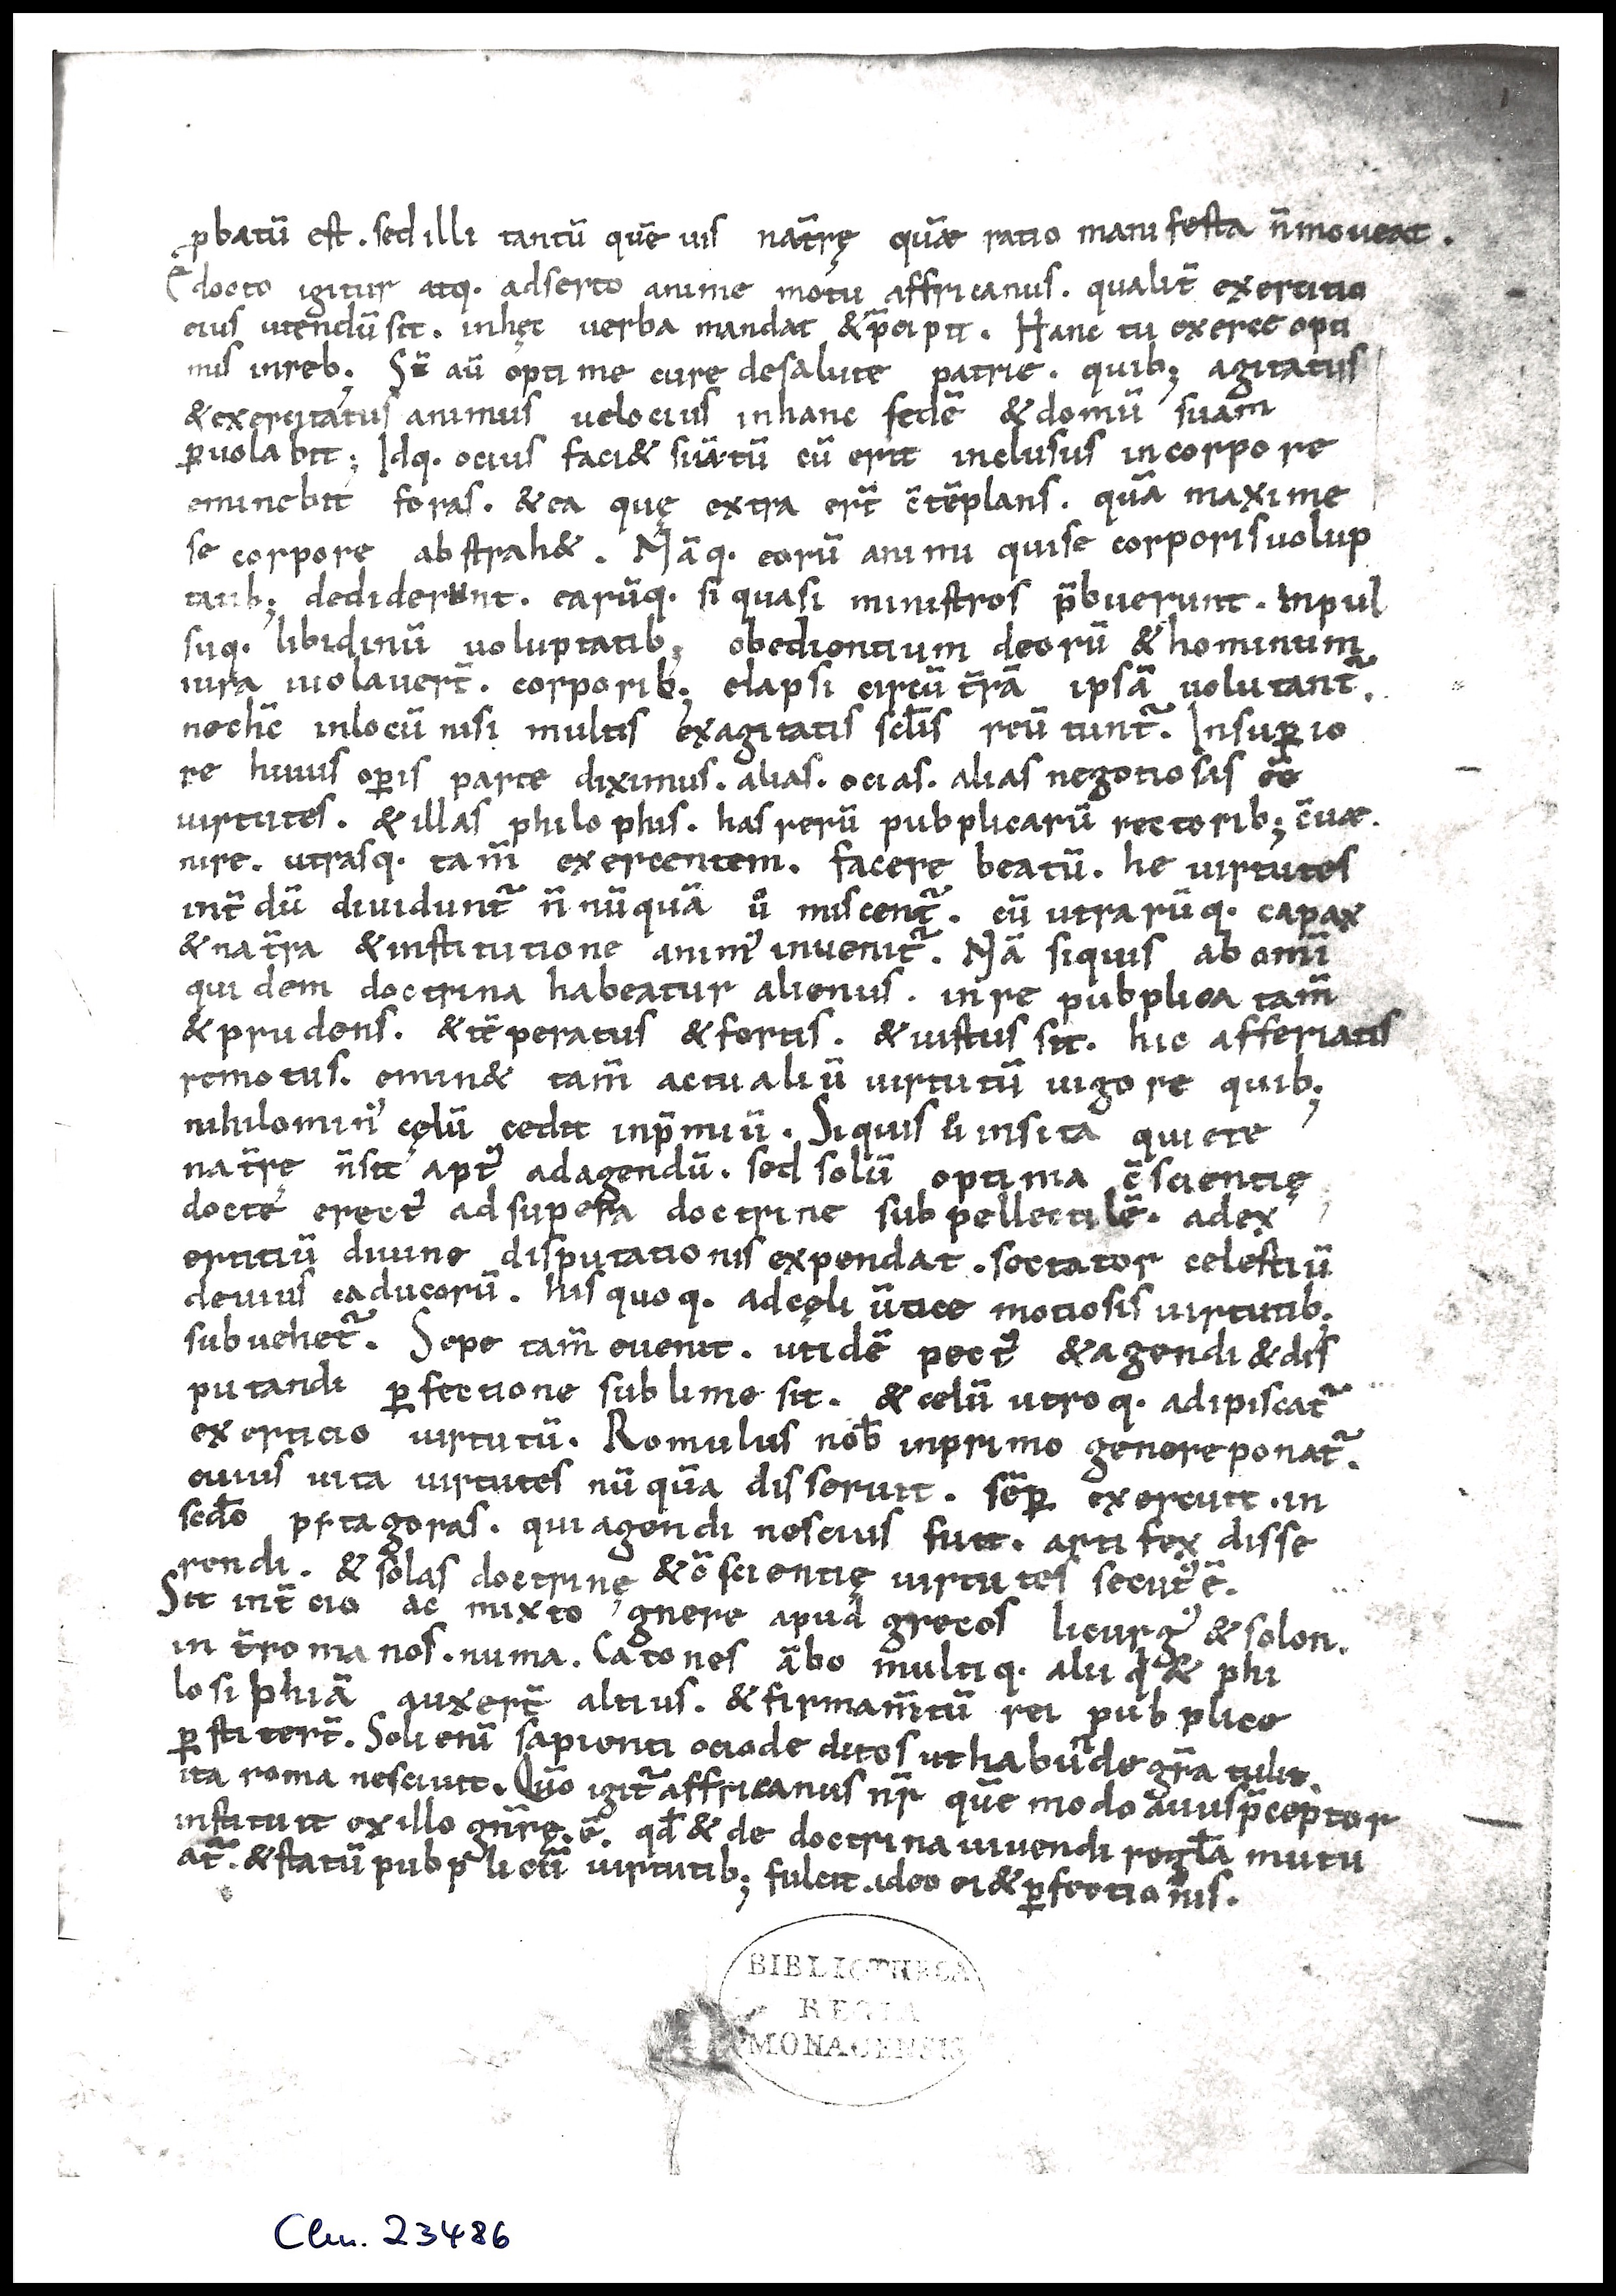 ꝓbatū est . sed illi tantū quē uis nat̄rę quā ratio manifesta n̄ moueat .
Edocto igitur atq. adserto anime motu affricanus . qualit̄ exercitio
eius utendū sit . in hęc uerba mandat & p̄cipit . Hanc tu exerce opti
mis in reb; Sū aū optime cure de salute patrie . quib; agitatus
& exercitatus animus uelocius in hanc sedē & domū suam
ꝑuolabit; Idq. ocius faci& si iā tū cū erit inclusus in corpore
eminebit foras . & ea quę extra er̄t c̄tēplans . quā maxime
se corpore abstrah& . Nāq. eorū animi qui se corporis uolup
tatib; dediderunt . earūq. si quasi ministros p̄buerunt . inpul
suq. libidinū uoluptatib; obedientium deorū & hominum
iura uiolauer̄t . corporib; elapsi circū t̄rā ipsā uolutant᷑.
nec hc̄ in locū nisi multis exagitatis scl̄is reūtunt᷑. In suꝑio
re huius oꝑis parte diximus . alias . ocias . alias negotiosas ēē
uirtutes . & illas philophis . has rerū pubplicarū rectorib; c̄uæ.
nire . utrasq. tam̄ exercentem . facere beatū . he uirtutes
int̄dū diuidunt᷑ n̄nūquā ů miscent᷑ . cū utrarūq. capax
& nat̄ra & institutione anim᾽ inuenit᷑ . Nā siquis ab omī
quidem doctrina habeatur alienus . in re pubplica tam̄
& prudens . & tēperatus & fortis . & iustus sit . hic afferiatis
remotus . emin& tam̄ actualiū uirtutū uigore quib;
nihilomin᾽ cęlū cedit in p̄miū . Siquis ů insita quiete
nat̄rę n̄ sit apt᾽ ad agendū . sed solū optima c̄scientię
docte erect᾽ ad supera doctrine subpellectilē . ad ex
ercitiū diuine disputationis expendat . sectator celestiū
deuius caducorū . his quoq. ad cęli ūtice motiosis uirtutib;
subuehet᷑ . Sepe tam̄ euenit . ut idē pect᾽ & agendi & dis
putandi ꝑfectione sublime sit . & celū utroq. adipiscat᷑
exercicio uirtutū . Romulus nob̄ in primo genere ponat᷑.
cuius uita uirtutes nūquā disseruit . sēꝑ exercuit . in
scd̄o pitagoras . qui agendi nescius fuit . artifex disse
rendi . & solas doctrinę & c̄scientię uirtutes secut᾽ ē.
Sit in t̄cio ac mixto gnere apud grecos licurg᾽ & solon.
int̄ romanos . numa . Catones ābo multiq. alii q & phi
losiphiā auxer̄t altius . & firmam̄tū rei pubplice
ꝑstiter̄t . Soli enī sapienti ocio deditos ut habūde gr̄a tulit.
ita roma nesciuit . Quō igit᷑ affricanus nr̄ quē modo auus p̄ceptor
instituit ex illo gn̄re. ē. qd̄ & de doctrina uiuendi regl̄a mutu
at᷑ . & statū pubplicū uirtutib; fulcit . ideo ei & ꝑfectionis.
BIBLIOTHECA
REGIA
MONACENSIS
Clm. 23486